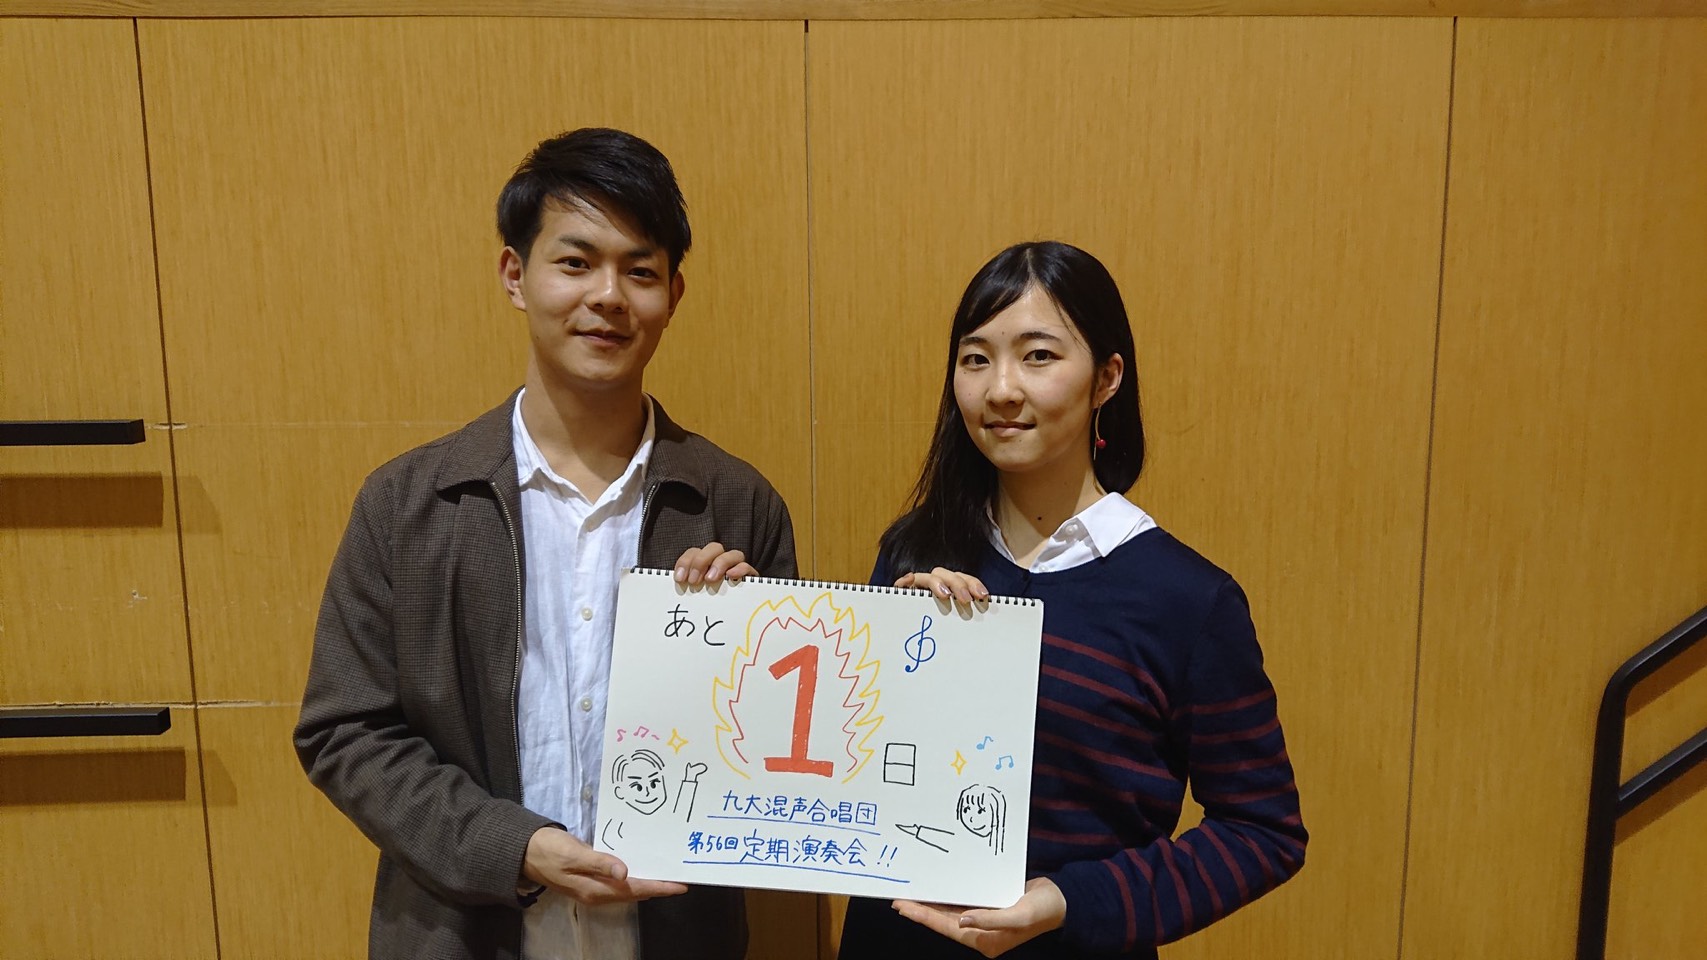 あと
1
日
九大混声合唱団
第56回定期演奏会!!